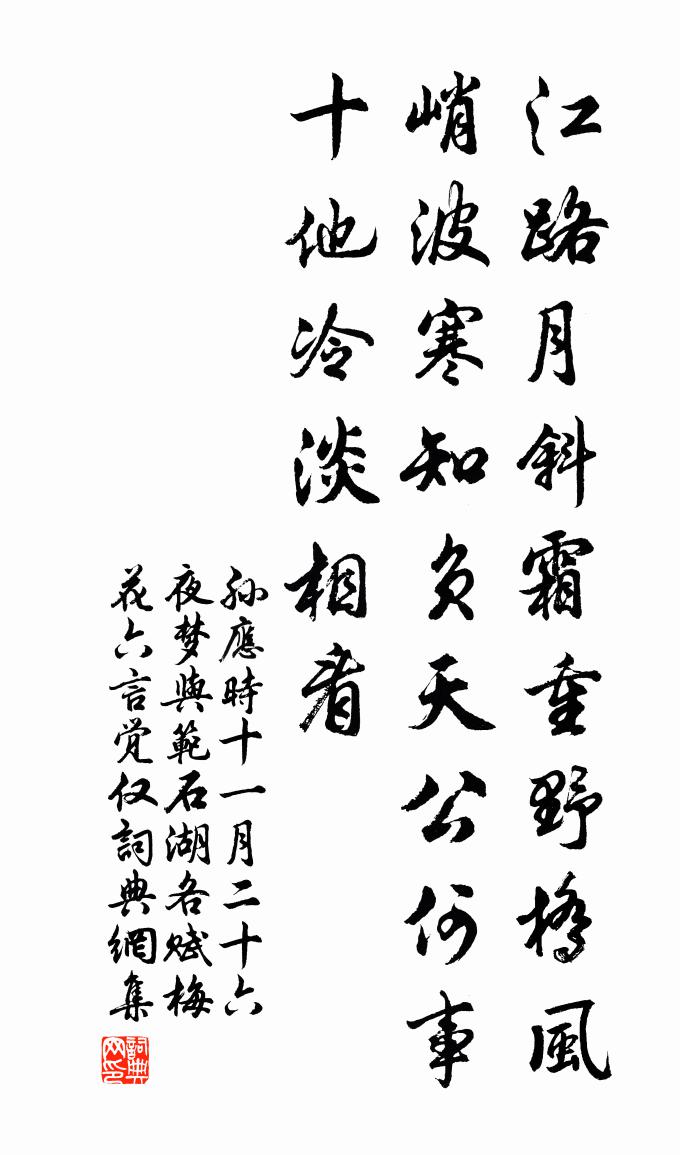 江路月斜霜重野橋風
峭波寒知負天公何事
十他冷淡相看
孫應時十一月二十六
夜梦與範石湖各賦梅
花六言覺仅詞典網集
詞典
网印